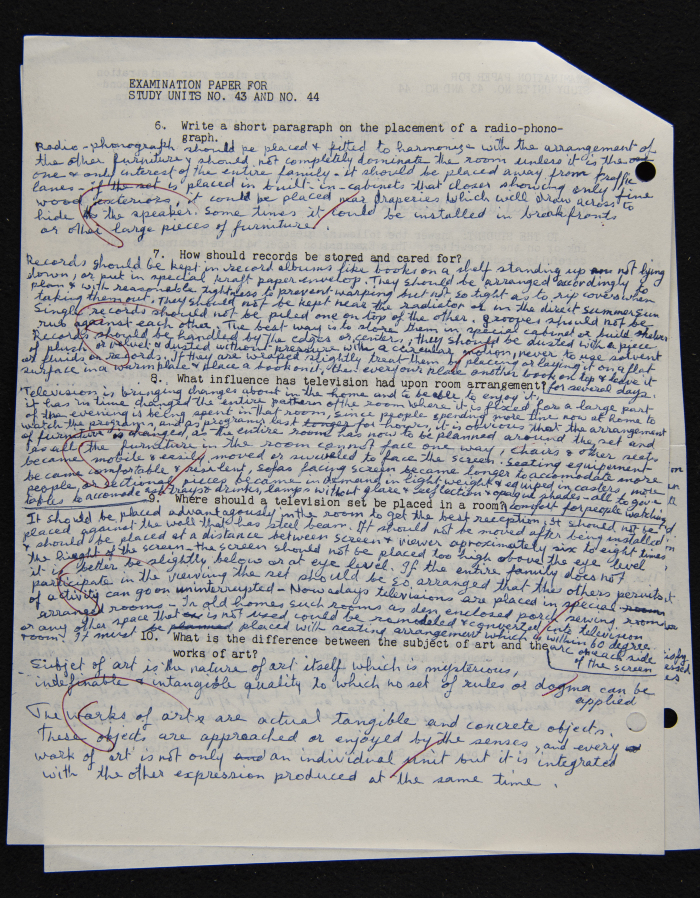 EXAMINATION PAPER FOR
STUDY UNITS NO. 43 AND NO. 44
6. Write a short paragraph on the placement of a radio-phono-
graph.
Radio-phonograph should be placed & fitted to harmonize with the arrangement of
the other furniture & should not completely dominate the room unless it is the
one & only interest of the entire family - it should be placed away from traffic
lanes - if the set is placed in built-in-cabinets that closer showing only fine
wood exteriors, it could be placed near draperies which will draw across to
hide the speaker. Some times it could be installed in breakfronts
or other large pieces of furniture.
7. How should records be stored and cared for?
Records should be kept in record albums like books on a shelf standing up not lying
down, or put in special kraft paper envelop. They should be arranged accordingly to
plan & with reasonable tightness to prevent warping but not so tight as to rip covers when
taking them out. They should not be kept near the radiator or in the direct summer sun
Single records should not be piled one on top of the other. Grooves should not be
rub against each other. The best way is to store them in special cabinets, build shelves
Records should be handled by the edges or center, they should be dusted with a piece
of plush or velvet & dusted without pressure in a circular motion, never to use solvent
or fluids on records. If they are warped slightly treat them by placing or laying it on a flat
surface in a warm place & place a book on it, then everyour place another book on top & leave it
for several days.
8. What influence has television had upon room arrangement?
Television is bringing changes about in the home and to be able to enjoy it,
it has in time changed the entire pattern of the room where it is placed for a large part
of the evening is being spent in that room, since people spending more time now at home to
watch the programs, and as programs last longer for hours, it is obvious that the arrangement
of furniture is changed, as the entire room has now to be planned around the set and
as all the furniture in the room cannot face one way, chairs & other seats
became mobile & easily moved or swiveled to face the screen. Seating equipement
be came comfortable & resilent, sofas facing screen became longer to accomodate more
people, or sectional pieces became in demand in light weight & equiped in casters, more
tables to accomodate trays & drinks, lamps without glare & reflection & opaque shades - all to give
comfort for people watching
9. Where should a television set be placed in a room?
It should be placed advantageously in the room to get the best reception. It should not be
placed against the wall that has steel beam. It should not be moved after being installed
& should be placed at a distance between screen & viewer approximately six to eight times
the height of the screen - the screen should not be placed too high above the eye level
it is better be slightly below or at eye level. If the entire family does not
participate in the viewing the set should be so arranged that the others persuits
of activity can go on uninterrupted - Nowadays televisions are placed in special room
arranged rooms - In old homes such rooms as den enclosed porch sewing rooms
or any other space that is not used could be remodeled & converted into television
room. It must be planned placed with seating arrangement which is within 60 degree
arc on each side
of the screen
10. What is the difference between the subject of art and the
works of art?
Subjet of art is the nature of art itself which is mysterious,
indefinable & intangible quality to which no set of rules or dogma can be
applied
The works of art are actual tangible and concrete objects.
These objects are approached or enjoyed by the senses, and every
work of art is not only and an individual unit but it is integrated
with the other expression produced at the same time.